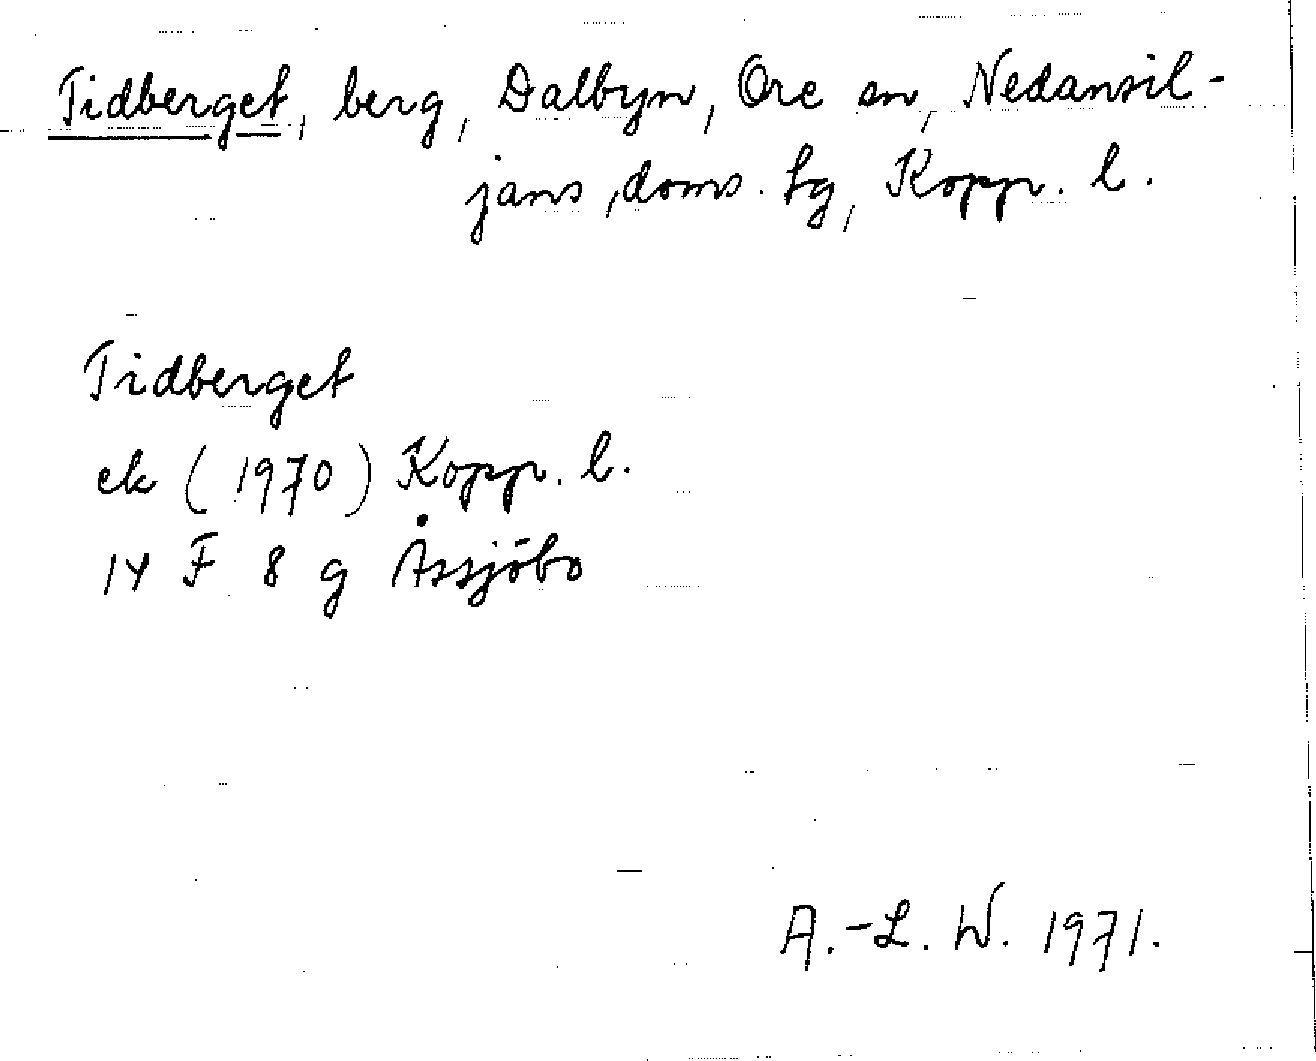 Tidberget, berg, Dalbyn, Ore sn, Nedansil-
jans, doms. hg, Kopp. l.
Tidberget
ek (1970) Kopp. l.
14 F 8 g Åssjöbo
A.-L. W. 1971.